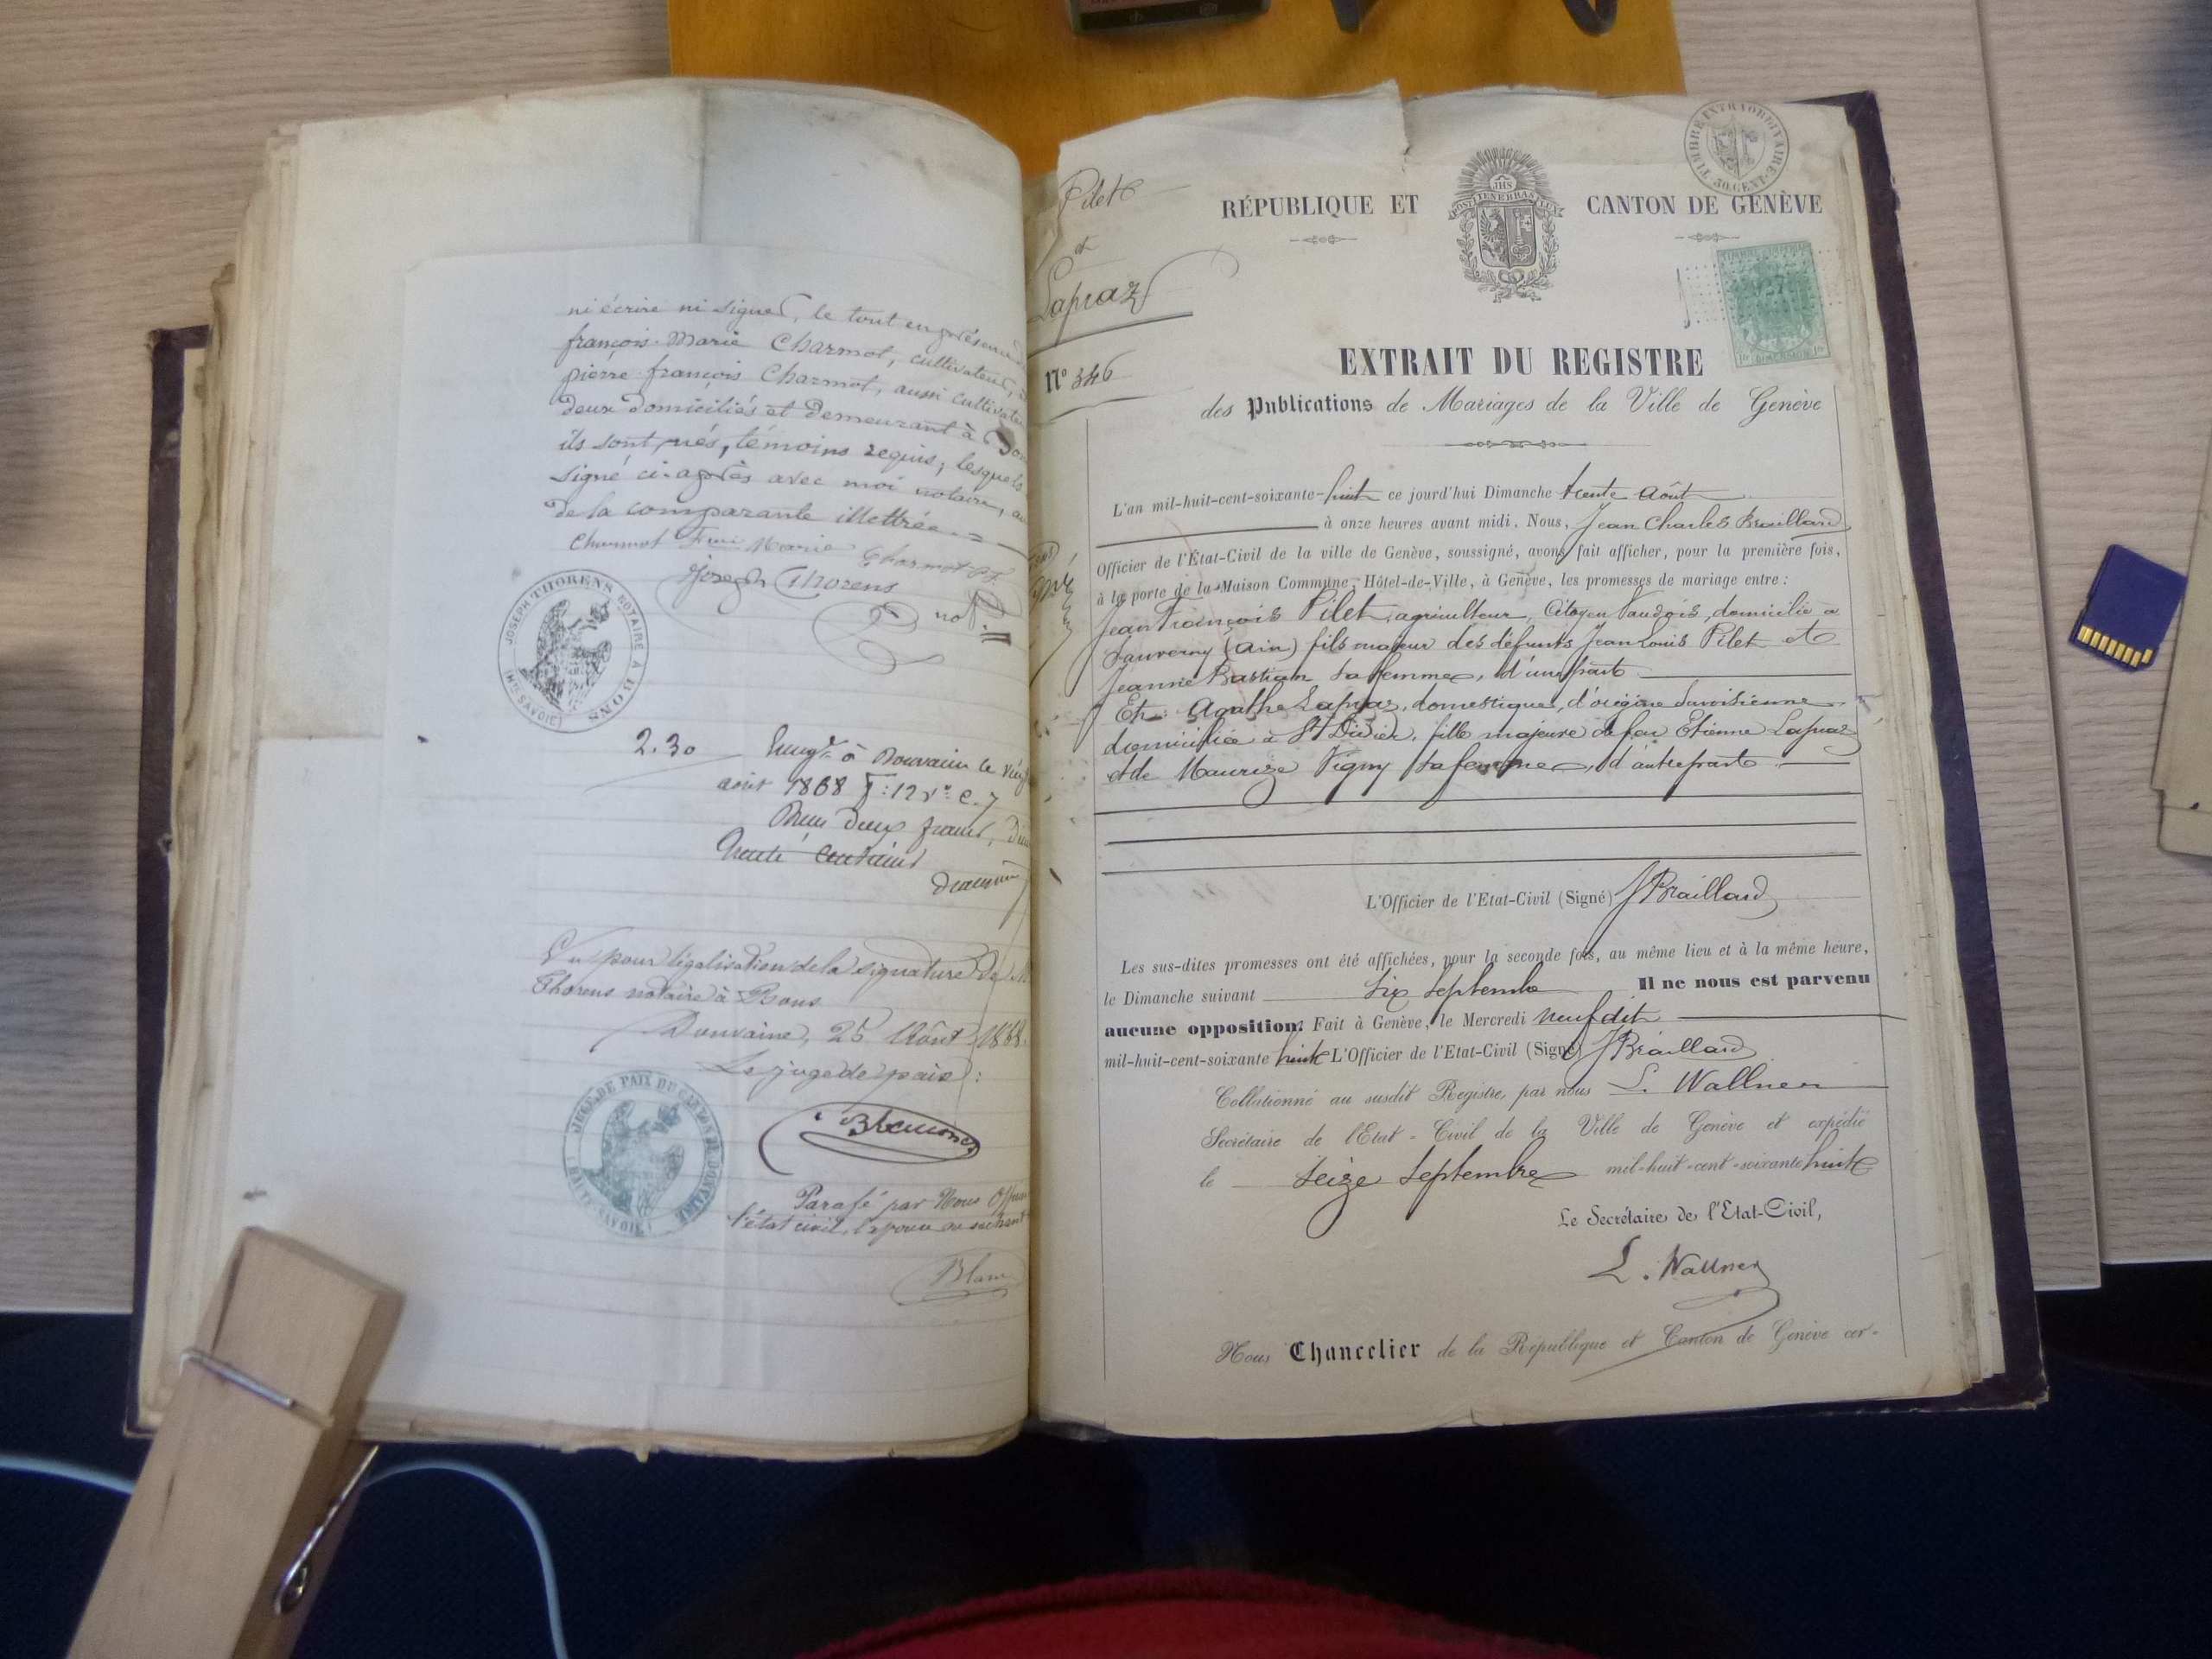 ni écrire ni signer, le tout en présence
françois-Marie Charmot, cultivateur,
pierre-françois Charmot, aussi cultivateur
deux domiciliés et demeurant à
ils sont nés, témoins requis, lesquels
signé ci-après avec moi notaire,
de la comparante illettrée
Charmot Marie Charmot
Joseph Thorens
not
JOSEPH THORENS NOTAIRE À BONS
(HTE SAVOIE)
2.30
à Douvaine le
août 1868 12 C. 7
deux francs,
trente centimes
Vu pour légalisation de la signature de M
Thorens notaire à Bons
Douvaine, 25 Août 1868
Le juge de paix :
JUGE DE PAIX DU CANTON DE DOUVAINE
(HAUTE-SAVOIE)
Parafé par Nous
l'état civil, l'épouse ne sachant
Pilet
et
Lapraz
N° 346
TIMBRE EXTRAORDINAIRE
30. CENT.
RÉPUBLIQUE ET CANTON DE GENÈVE
JHS
POST TENEBRAS LUX
EXTRAIT DU REGISTRE
des Publications de Mariages de la Ville de Genève
L'an mil-huit-cent-soixante-huit ce jourd'hui Dimanche trente Août
à onze heures avant midi. Nous, Jean Charles Braillard
Officier de l'État-Civil de la ville de Genève, soussigné, avons fait afficher, pour la première fois,
à la porte de la Maison Commune, Hôtel-de-Ville, à Genève, les promesses de mariage entre :
Jean François Pilet, agriculteur, Citoyen Vaudois, domicilié à
Sauverny (Ain) fils majeur des défunts Jean Louis Pilet et
Jeanne Bastian sa femme, d'une part
Et : Agathe Lapraz, domestique, d'origine Savoisienne
domiciliée à St Didier, fille majeure de feu Etienne Lapraz
et de Maurize Vigny sa femme, d'autre part
L'Officier de l'Etat-Civil (Signé) J Braillard
Les sus-dites promesses ont été affichées, pour la seconde fois, au même lieu et à la même heure,
le Dimanche suivant six Septembre Il ne nous est parvenu
aucune opposition. Fait à Genève, le Mercredi neuf dit
mil-huit-cent-soixante huit L'Officier de l'Etat-Civil (Signé) J Braillard
Collationné au susdit Registre, par nous L. Wallner
Secrétaire de l'Etat-Civil de la Ville de Genève et expédié
le seize Septembre mil-huit-cent-soixante huit
Le Secrétaire de l'Etat-Civil,
L. Wallner
Nous Chancelier de la République et Canton de Genève cer-